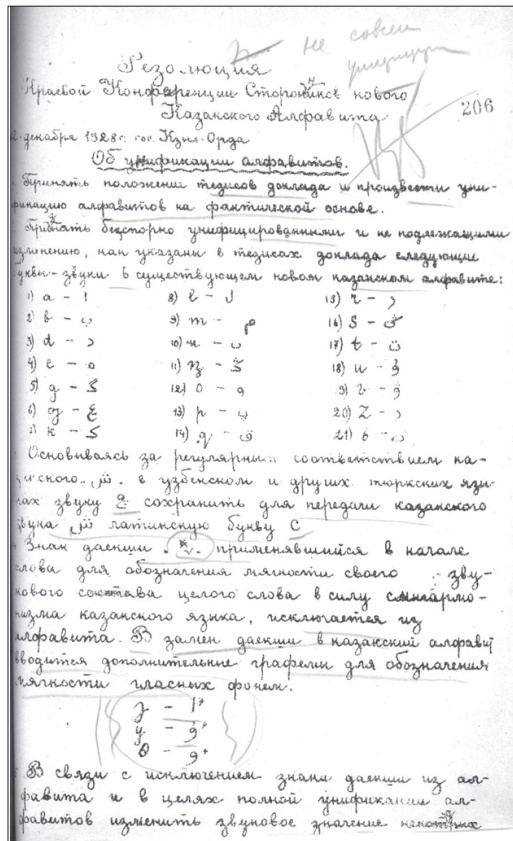 не совсем
унифицир
Резолюция
Краевой Конференции Сторонников нового
Казакского Алфавита
206
декабря 1928 г. гор. Кзыл-Орда
Об унификации алфавитов.
Принять положении тезисов доклада и произвести уни-
фикацию алфавитов на фактической основе.
Признать бесспорно унифицированными и не подлежащими
изменению, как указаны в тезисах доклада следующие
буквы-звуки в существующем новом казакском алфавите:
1) a - ا 8) l - ل 15) r - ر
2) b - ب 9) m - م 16) s - س
3) d - د 10) n - ن 17) t - ت
4) e - ە 11) - ڭ 18) u - ۇ
5) g - گ 12) o - و 19) v - ۋ
6) - ع 13) p - پ 20) z - ز
7) k - ك 14) q - ق 21)
Основываясь за регулярным соответствием ка-
закского ش с узбекском и других тюркских язы-
ках звуку сохранить для передачи казакского
звука ش латинскую букву C
Знак даекши применявшийся в начале
слова для обозначения мягкости своего зву-
кового состава целого слова в силу сингармо-
низма казакского языка, исключается из
алфавита. В замен даекши в казакский алфавит
вводится дополнительные графемы для обозначения
мягкости гласных фонем.
У - و
В связи с исключением знака даекши из ал-
фавита и в целях полной унификации ал-
фавитов изменить звуковое значение некоторых